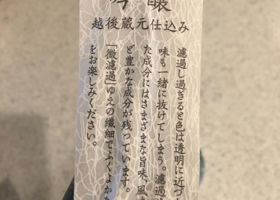 吟醸
越後蔵元仕込み
濾過し過ぎると色は透明に近づ
味も一緒に抜けてしまう。濾過
た成分にはさまざまな旨味、風
ど豊かな成分が残っています。
「微濾過」ゆえの繊細でふくよかな
をお楽しみください。